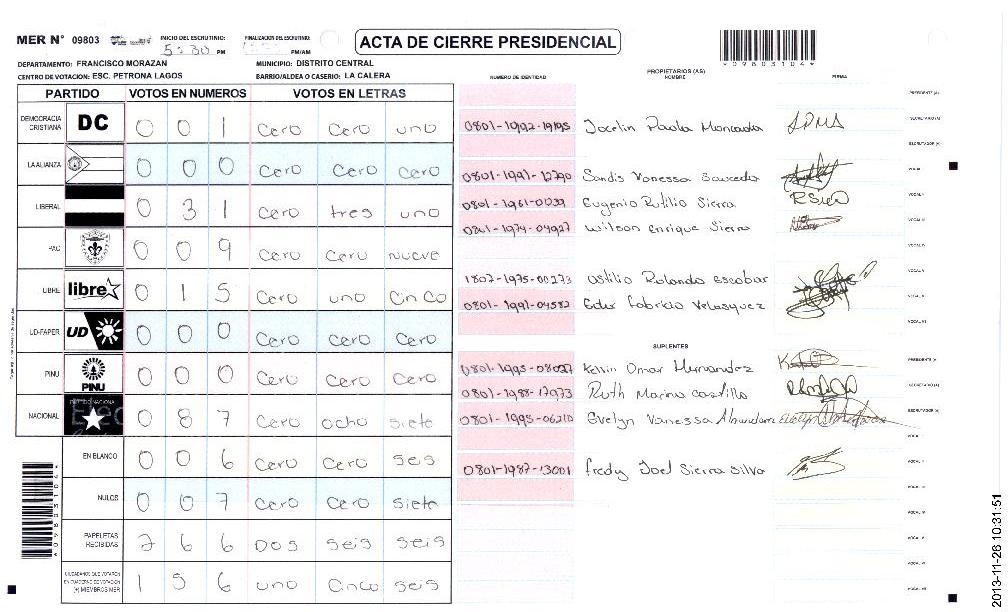 MER N° 09803 INICIO DEL ESCRUTINIO: 5:30 PM FINALIZACION DEL ESCRUTINIO: PM/AM
ACTA DE CIERRE PRESIDENCIAL
*09803104*
DEPARTAMENTO: FRANCISCO MORAZAN MUNICIPIO: DISTRITO CENTRAL
CENTRO DE VOTACION: ESC. PETRONA LAGOS BARRIO/ALDEA O CASERIO: LA CALERA
NUMERO DE IDENTIDAD PROPIETARIOS (AS) NOMBRE FIRMA
PARTIDO VOTOS EN NUMEROS VOTOS EN LETRAS
DEMOCRACIA CRISTIANA DC 0 0 1 cero cero uno
LA ALIANZA 0 0 0 cero cero cero
LIBERAL 0 3 1 cero tres uno
PAC 0 0 9 cero cero nueve
LIBRE libre 0 1 5 cero uno cinco
UD-FAPER UD 0 0 0 cero cero cero
PINU PINU 0 0 0 cero cero cero
NACIONAL 0 8 7 cero ocho siete
EN BLANCO 0 0 6 cero cero seis
NULOS 0 0 7 cero cero siete
PAPELETAS RECIBIDAS 2 6 6 Dos seis seis
CIUDADANOS QUE VOTARON
EN CUADERNO DE VOTACION
(+) MIEMBROS MER 1 5 6 uno cinco seis
PRESIDENTE (A)
0801-1992-19195 Jocelin Paola Moncada SECRETARIO (A)
ESCRUTADOR (A)
0801-1991-12790 Sandis Vanessa Sauceda VOCAL I
0801-1961-01039 Eugenio Rutilio Sierra VOCAL II
0801-1974-04927 Wilson Enrique Sierra VOCAL III
VOCAL IV
1807-1975-00273 Ostilio Rolando escobar VOCAL V
0801-1991-04582 Eder Fabricio Velasquez VOCAL VI
VOCAL VII
SUPLENTES
0801-1995-08027 Kelvin Omar Hernandez PRESIDENTE (A)
0801-1988-17973 Ruth Marina Castillo SECRETARIO (A)
0801-1995-06210 Evelyn Vanessa ESCRUTADOR (A)
VOCAL I
0801-1987-13001 fredy Joel Sierra Silva VOCAL II
VOCAL III
VOCAL IV
VOCAL V
VOCAL VI
VOCAL VII
*09803104*
2013-11-26 10:31:51